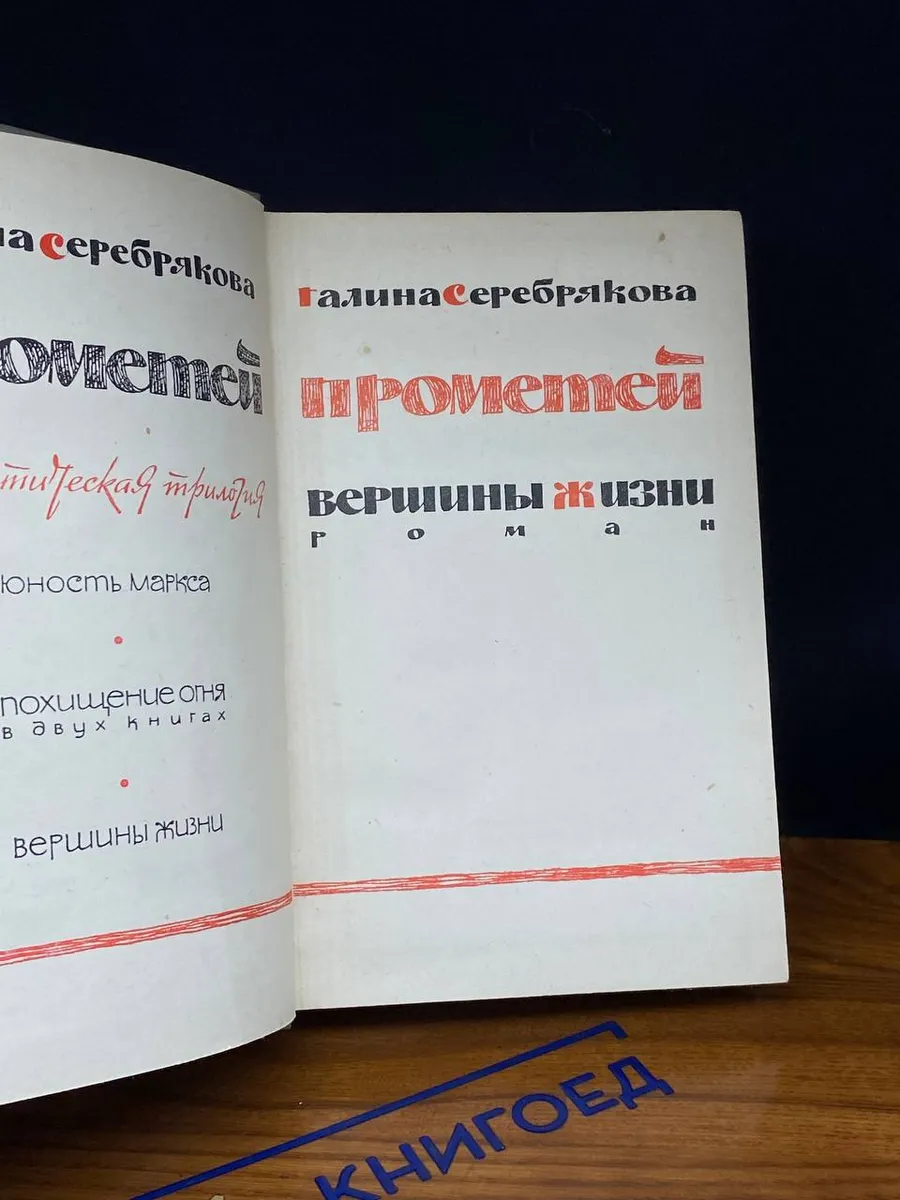 на Серебрякова
ометей
тическая трилогия
юность маркса
похищение огня
в двух книгах
вершины жизни
галина Серебрякова
прометей
вершины жизни
роман
КНИГОЕД